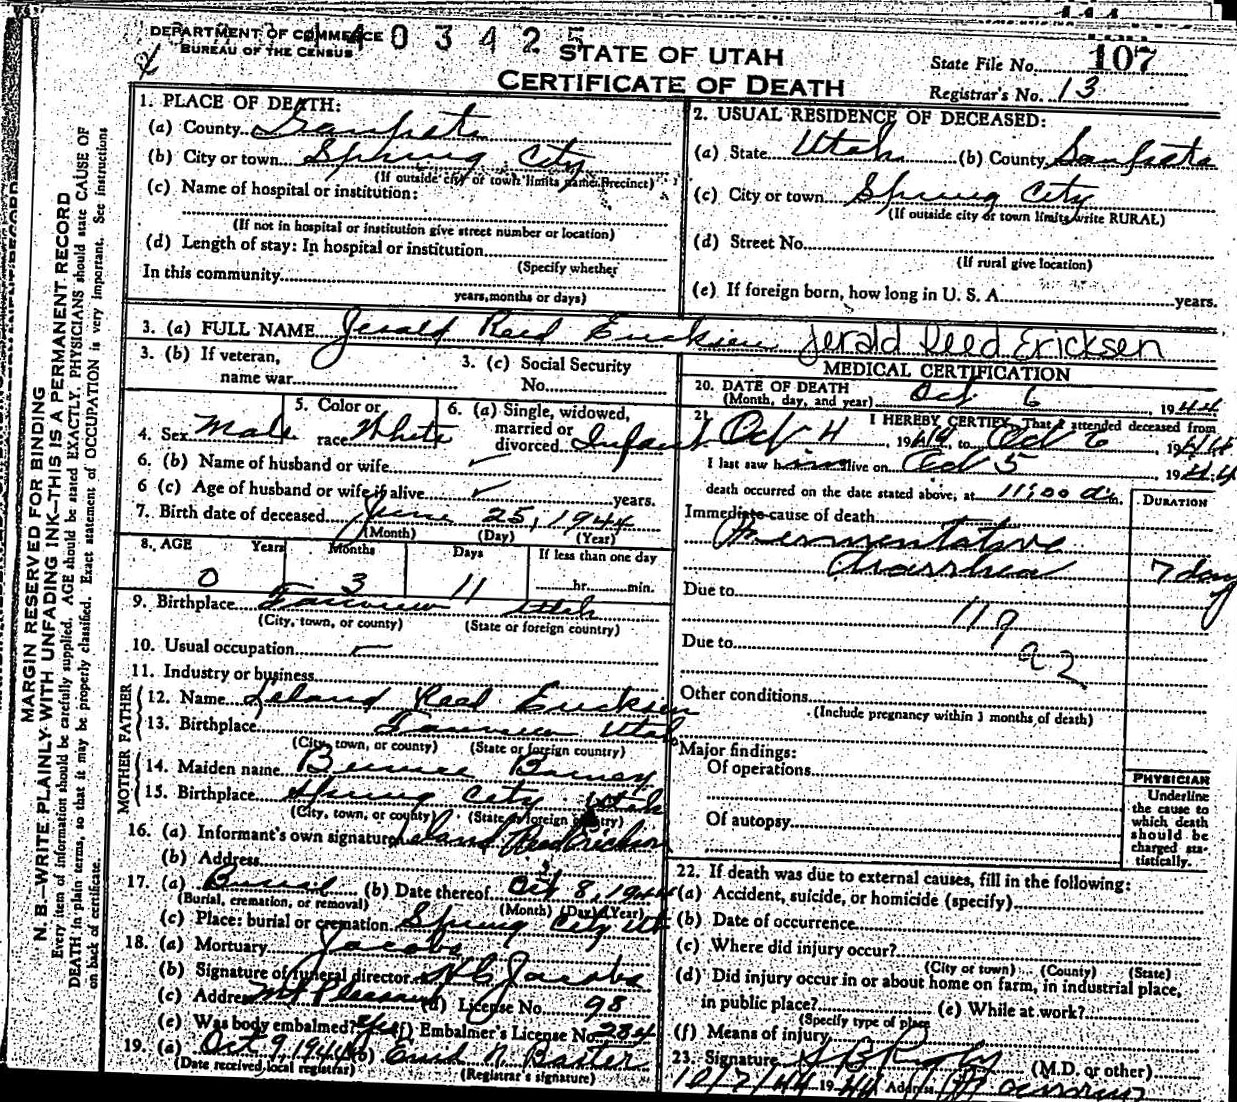 DEPARTMENT OF COMMERCE
BUREAU OF THE CENSUS
403425
STATE OF UTAH
CERTIFICATE OF DEATH
State File No. 107
Registrar's No. 13
1. PLACE OF DEATH:
(a) County Sanpete
(b) City or town Spring City
(If outside city or town limits name Precinct)
(c) Name of hospital or institution:
(If not in hospital or institution give street number or location)
(d) Length of stay: In hospital or institution
(Specify whether
In this community
years, months or days)
2. USUAL RESIDENCE OF DECEASED:
(a) State Utah (b) County Sanpete
(c) City or town Spring City
(If outside city or town limits write RURAL)
(d) Street No.
(If rural give location)
(e) If foreign born, how long in U. S. A. years.
3. (a) FULL NAME Jerald Reed Ericksen Jerald Reed Ericksen
3. (b) If veteran,
name war
3. (c) Social Security
No.
4. Sex Male
5. Color or
race White
6. (a) Single, widowed,
married or
divorced Infant
6. (b) Name of husband or wife
6 (c) Age of husband or wife if alive years.
7. Birth date of deceased June 25, 1944
(Month) (Day) (Year)
8. AGE Years Months Days If less than one day
0 3 11 hr. min.
9. Birthplace Fairview Utah
(City, town, or county) (State or foreign country)
10. Usual occupation
11. Industry or business
FATHER
12. Name Leland Reed Ericksen
13. Birthplace Fairview Utah
(City, town, or county) (State or foreign country)
MOTHER
14. Maiden name Bernice Barney
15. Birthplace Spring City Utah
(City, town, or county) (State or foreign country)
16. (a) Informant's own signature Leland Reed Erickson
(b) Address
17. (a) Burial (b) Date thereof Oct 8, 1944
(Burial, cremation, or removal) (Month) (Day) (Year)
(c) Place: burial or cremation Spring City Ut
18. (a) Mortuary Jacobs
(b) Signature of funeral director H C Jacobs
(c) Address Mt Pleasant (d) License No. 98
(e) Was body embalmed? yes (f) Embalmer's License No. 284
19. (a) Oct 9, 1944 (b) Enid N Baxter
(Date received local registrar) (Registrar's signature)
MEDICAL CERTIFICATION
20. DATE OF DEATH
(Month, day, and year) Oct 6 1944
21. I HEREBY CERTIFY, That I attended deceased from
Oct 4, 1944, to Oct 6, 1944
I last saw him alive on Oct 5 1944
death occurred on the date stated above, at 11:00 a.m.
DURATION
Immediate cause of death
Fermentative
diarrhea 7 days
Due to
119
Due to
a2
Other conditions
(Include pregnancy within 3 months of death)
Major findings:
Of operations
Of autopsy
PHYSICIAN
Underline
the cause to
which death
should be
charged sta-
tistically.
22. If death was due to external causes, fill in the following:
(a) Accident, suicide, or homicide (specify)
(b) Date of occurrence
(c) Where did injury occur?
(City or town) (County) (State)
(d) Did injury occur in or about home on farm, in industrial place,
in public place? (e) While at work?
(Specify type of place
(f) Means of injury
23. Signature (M.D. or other)
10/7/44 1944 Address
MARGIN RESERVED FOR BINDING
N. B.—WRITE PLAINLY WITH UNFADING INK—THIS IS A PERMANENT RECORD
Every item of information should be carefully supplied. AGE should be stated EXACTLY. PHYSICIANS should state CAUSE OF
DEATH in plain terms, so that it may be properly classified. Exact statement of OCCUPATION is very important. See instructions
on back of certificate.